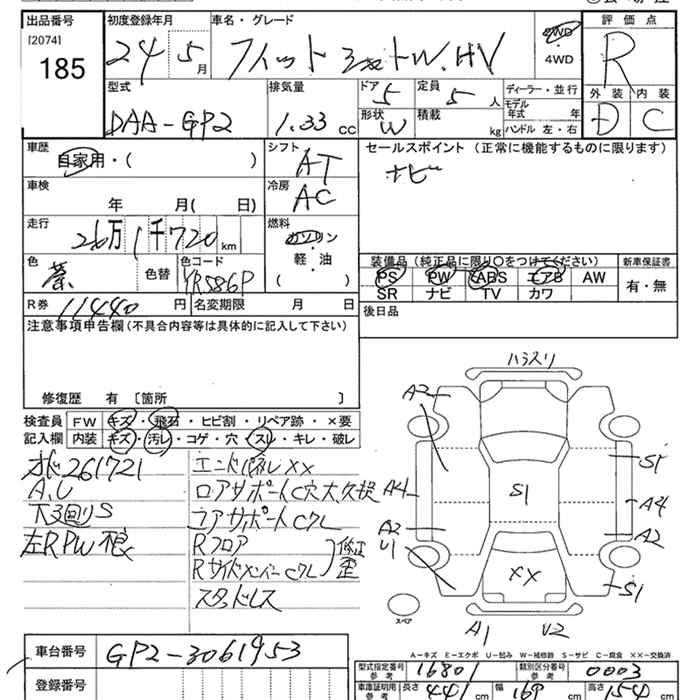 出品番号 [2074] 185
初度登録年月 24 5月
車名・グレード フィット シャトルHV
2WD・4WD
評価点 R
外装 D 内装 C
型式 DAA-GP2
排気量 1.33 cc
ドア 5 定員 5 人
形状 W 積載 kg
ディーラー・並行
モデル年式 年
ハンドル 左・右
車歴 自家用・( )
シフト AT
セールスポイント (正常に機能するものに限ります)
ナビ
車検 年 月( 日)
冷房 AC
走行 26万1千720km
燃料 ガソリン・軽・油 ( )
色 茶 色替 色コード YR586P
装備品(純正品に限り○をつけてください) 新車保証書
PS PW ABS エアB AW 有・無
SR ナビ TV カワ
R券 11440 円 名変期限 月 日
後日品
注意事項申告欄(不具合内容等は具体的に記入して下さい)
修復歴 有 〔箇所 〕
検査員記入欄
FW キズ・飛石・ヒビ割・リペア跡・×要
内装 キズ・汚レ・コゲ・穴・スレ・キレ・破レ
261721
A.U
下3回りS
左RPW不良
XX
ロアサポートC穴大久损
ラアサポートCクレ
Rフロア
RサイドメンバーCクレ
修正歪
スタッドレス
ハラスリ
A2
S1
A4
S1
A4
A2
U1
A2
XX
S1
スペア
A1 U2
A-キズ E-エクボ U-凹み W-補修跡 S-サビ C-腐食 ××-交換済
車台番号 GP2-3061953
登録番号
型式指定番号 参考 16801 類別区分番号 参考 0003
車庫証明用 参考 長さ 441 cm 幅 169 cm 高さ 154 cm